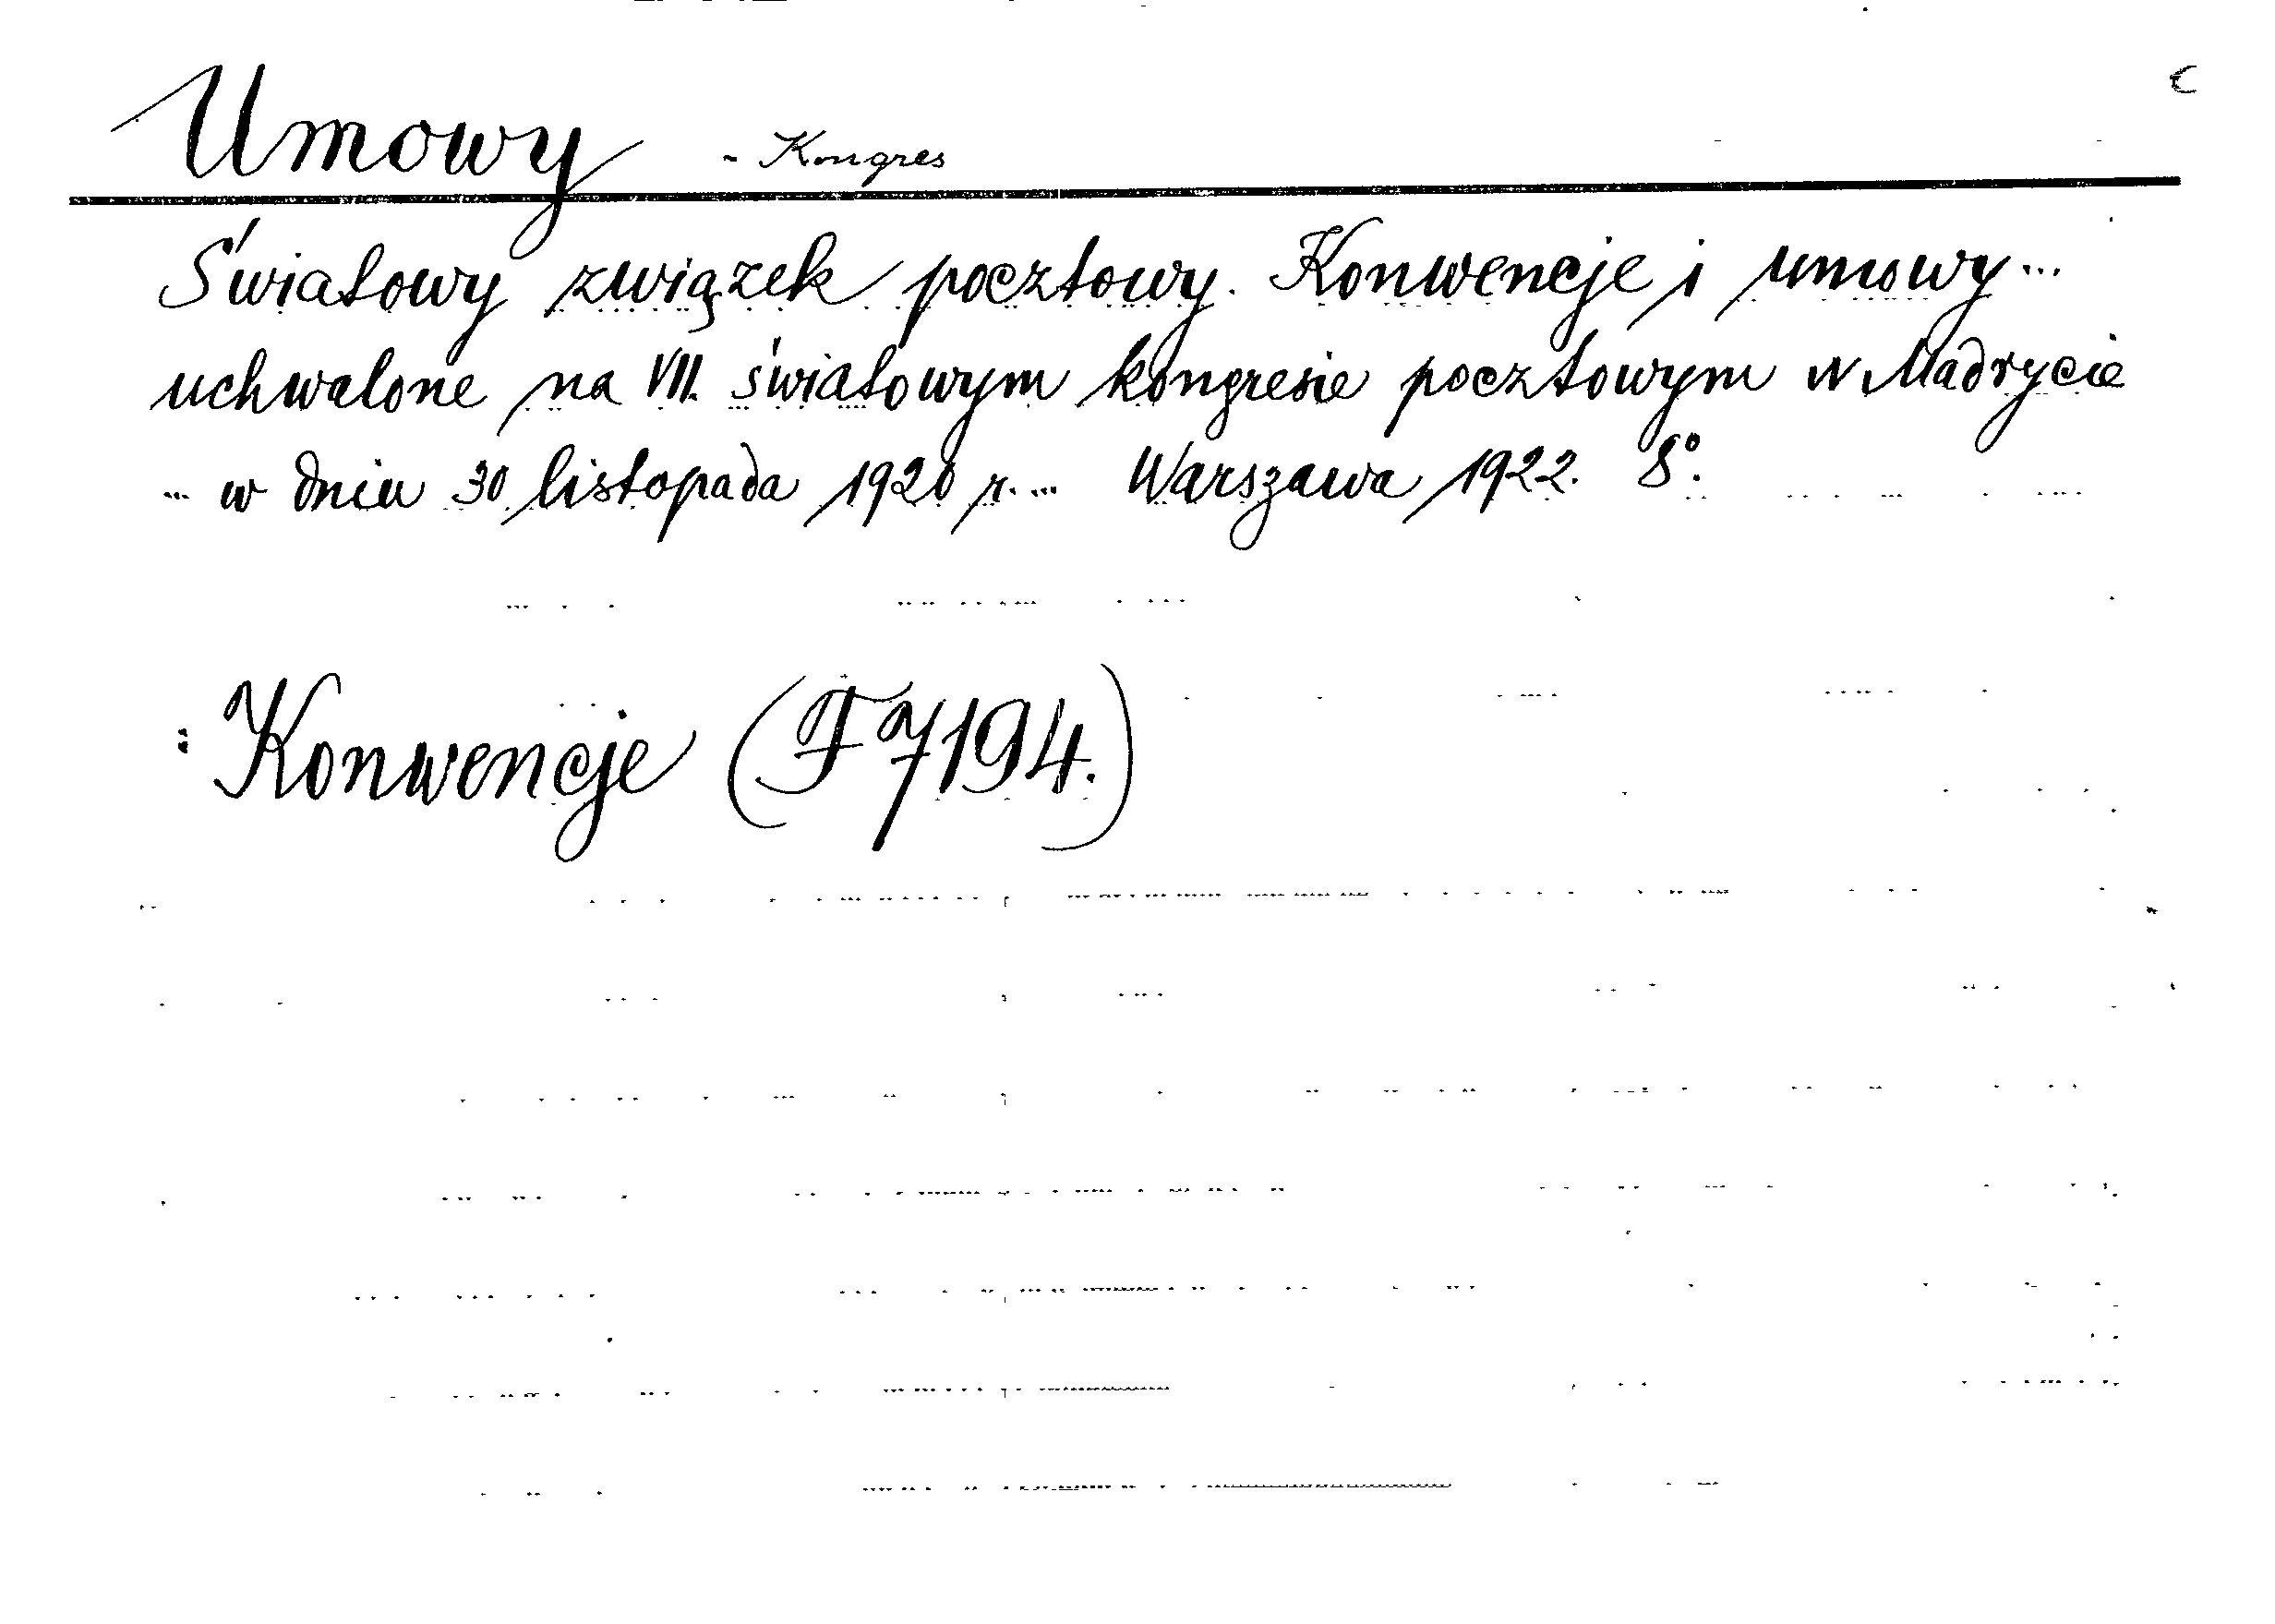 Umowy - Kongres
Światowy związek pocztowy. Konwencje i umowy...
uchwalone na VII. światowym kongresie pocztowym w Madrycie
... w dniu 30 listopada 1920 r. ... Warszawa 1922. 8°.
: Konwencje (F 7194.)